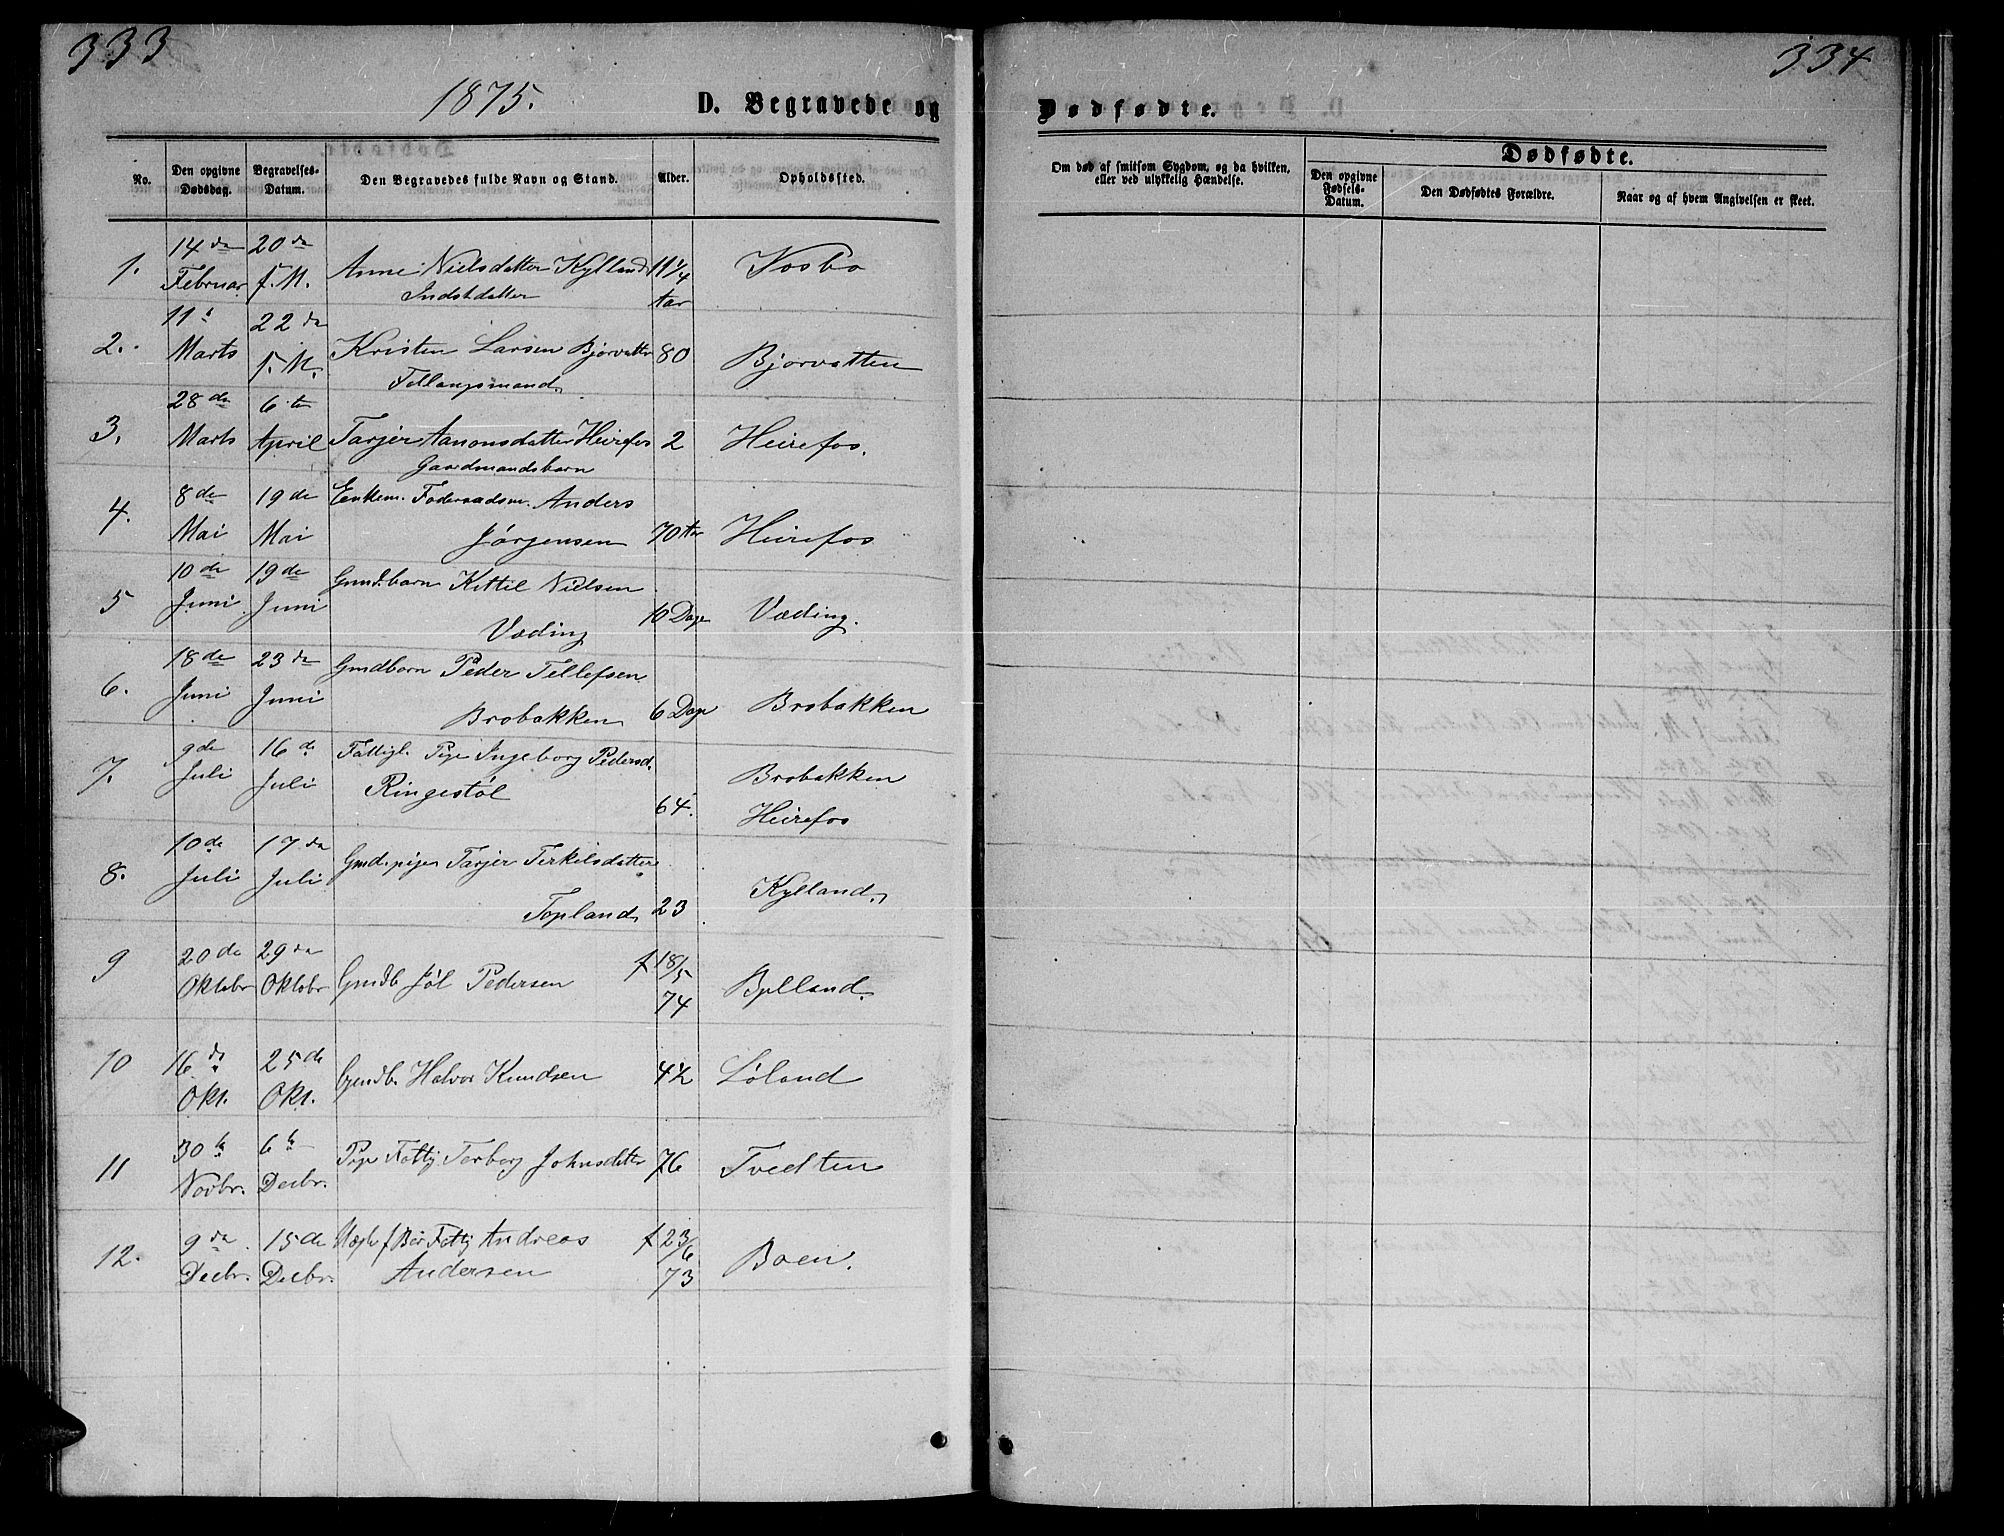 333
1875.
D. Begravede og
No.
Den opgivne Dødsdag.
Begravelses-Datum.
Den Begravedes fulde Navn og Stand.
Alder.
Opholdssted.
1. 14de Februar 20de s. M. Anne Nielsdatter Kylland 11 1/4 Aar Vosbo
Indstdatter
2. 11te Marts 22de s. M. Kristen Larsen Bjorvatten 80 Bjorvatten
3. 28de Marts 6te April Tarjer Aanonsdatter Heirefos 2 Heirefos.
Gaardmandsbarn
4. 8de Mai 19de Mai Enkem. Føderaadsm. Anders
Jørgensen 70 Aar Heirefos
5 10de Juni 19de Juni Gmdbarn Kittil Nielsen
Væding 10 Dage Væding.
6. 18de Juni 23de Juni Gmdbarn Peder Tellefsen
Brobakken 6 Dage Brobakken
7. 9de Juli 16de Juli Fattigl. Pige Ingeborg Pedersd. Brobakken
Ringestøl 64. Heirefos
8. 10de Juli 17de Juli Gmd. pige Tarjer Terkilsdatter
Topland 23 Kylland.
9 20de Oktobr 29de Oktobr Gmdb Jøl Pedersen f 18/5 74 Bylland.
10 16de Okt. 25de Okt. Gmdb. Halvor Knudsen 42 Løland
11 30te Novbr. 6te Decbr. Pige Fattig Torborg Johnsdatter 76 Tvedten
12. 9de Decbr. 15de Decbr. Fattig Andreas f 23/6 73 Boen.
Andersen
334
Dødfødte.
Om død af smitsom Sygdom, og da hvilken, eller ved ulykkelig Hændelse.
Dødfødte.
Den opgivne Fødsels-Datum.
Den Dødfødtes Forældre.
Naar og af hvem Angivelsen er skeet.